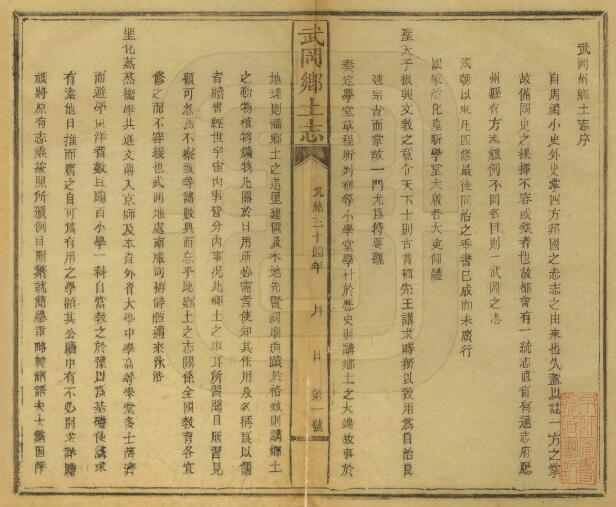 武岡州鄉土志序
自周禮小史外史掌四方邦國之志志之由來也久蓋以誌一方之掌
故備國史之採擇不容或缺者也故都會有一統志直省有通志府廳
州縣有方志體例不同名目則一武岡之志
國朝以來凡四修最後同治之季書已成而未廣行
國家治化重新學堂大啟各大吏仰體
聖天子振興文教之意令天下士則古昔稱先王講求時務以致用為自治良
謨宗旨而掌故一門尤為待要觀
奏定學堂章程所列初等小學堂學科於歷史則講鄉土之大端故事於
武岡鄉土志
光緒三十四年 月 日 第一號
地理則講鄉土之道里建置及本地先賢祠廟遺蹟於格致則講鄉土
之動物植物鑛物凡關於日用所必需者使知其作用及名稱良以儒
者讀書經世宇宙內事皆分內事况此鄉土之事耳所習聞目所習見
顧可忽焉不察致等諸數典而忘乎此鄉土之志關係全國教育各宜
修之而不容緩也武岡地處南服向稱僻陋邇來沐浴
聖化蒸蒸嚮學共進文明入京師及本省外省大學中學高等學堂多士濟濟
而遊學東洋者數且踰百小學一科自當教之於豫以為基礎使講求
有素他日推而廣之自可為有用之學顧其公牘中有不必別求詳瞻
祇將原有志乘按照所頒例目刪繁就簡舉重略輕謂語夫士鑛固陋